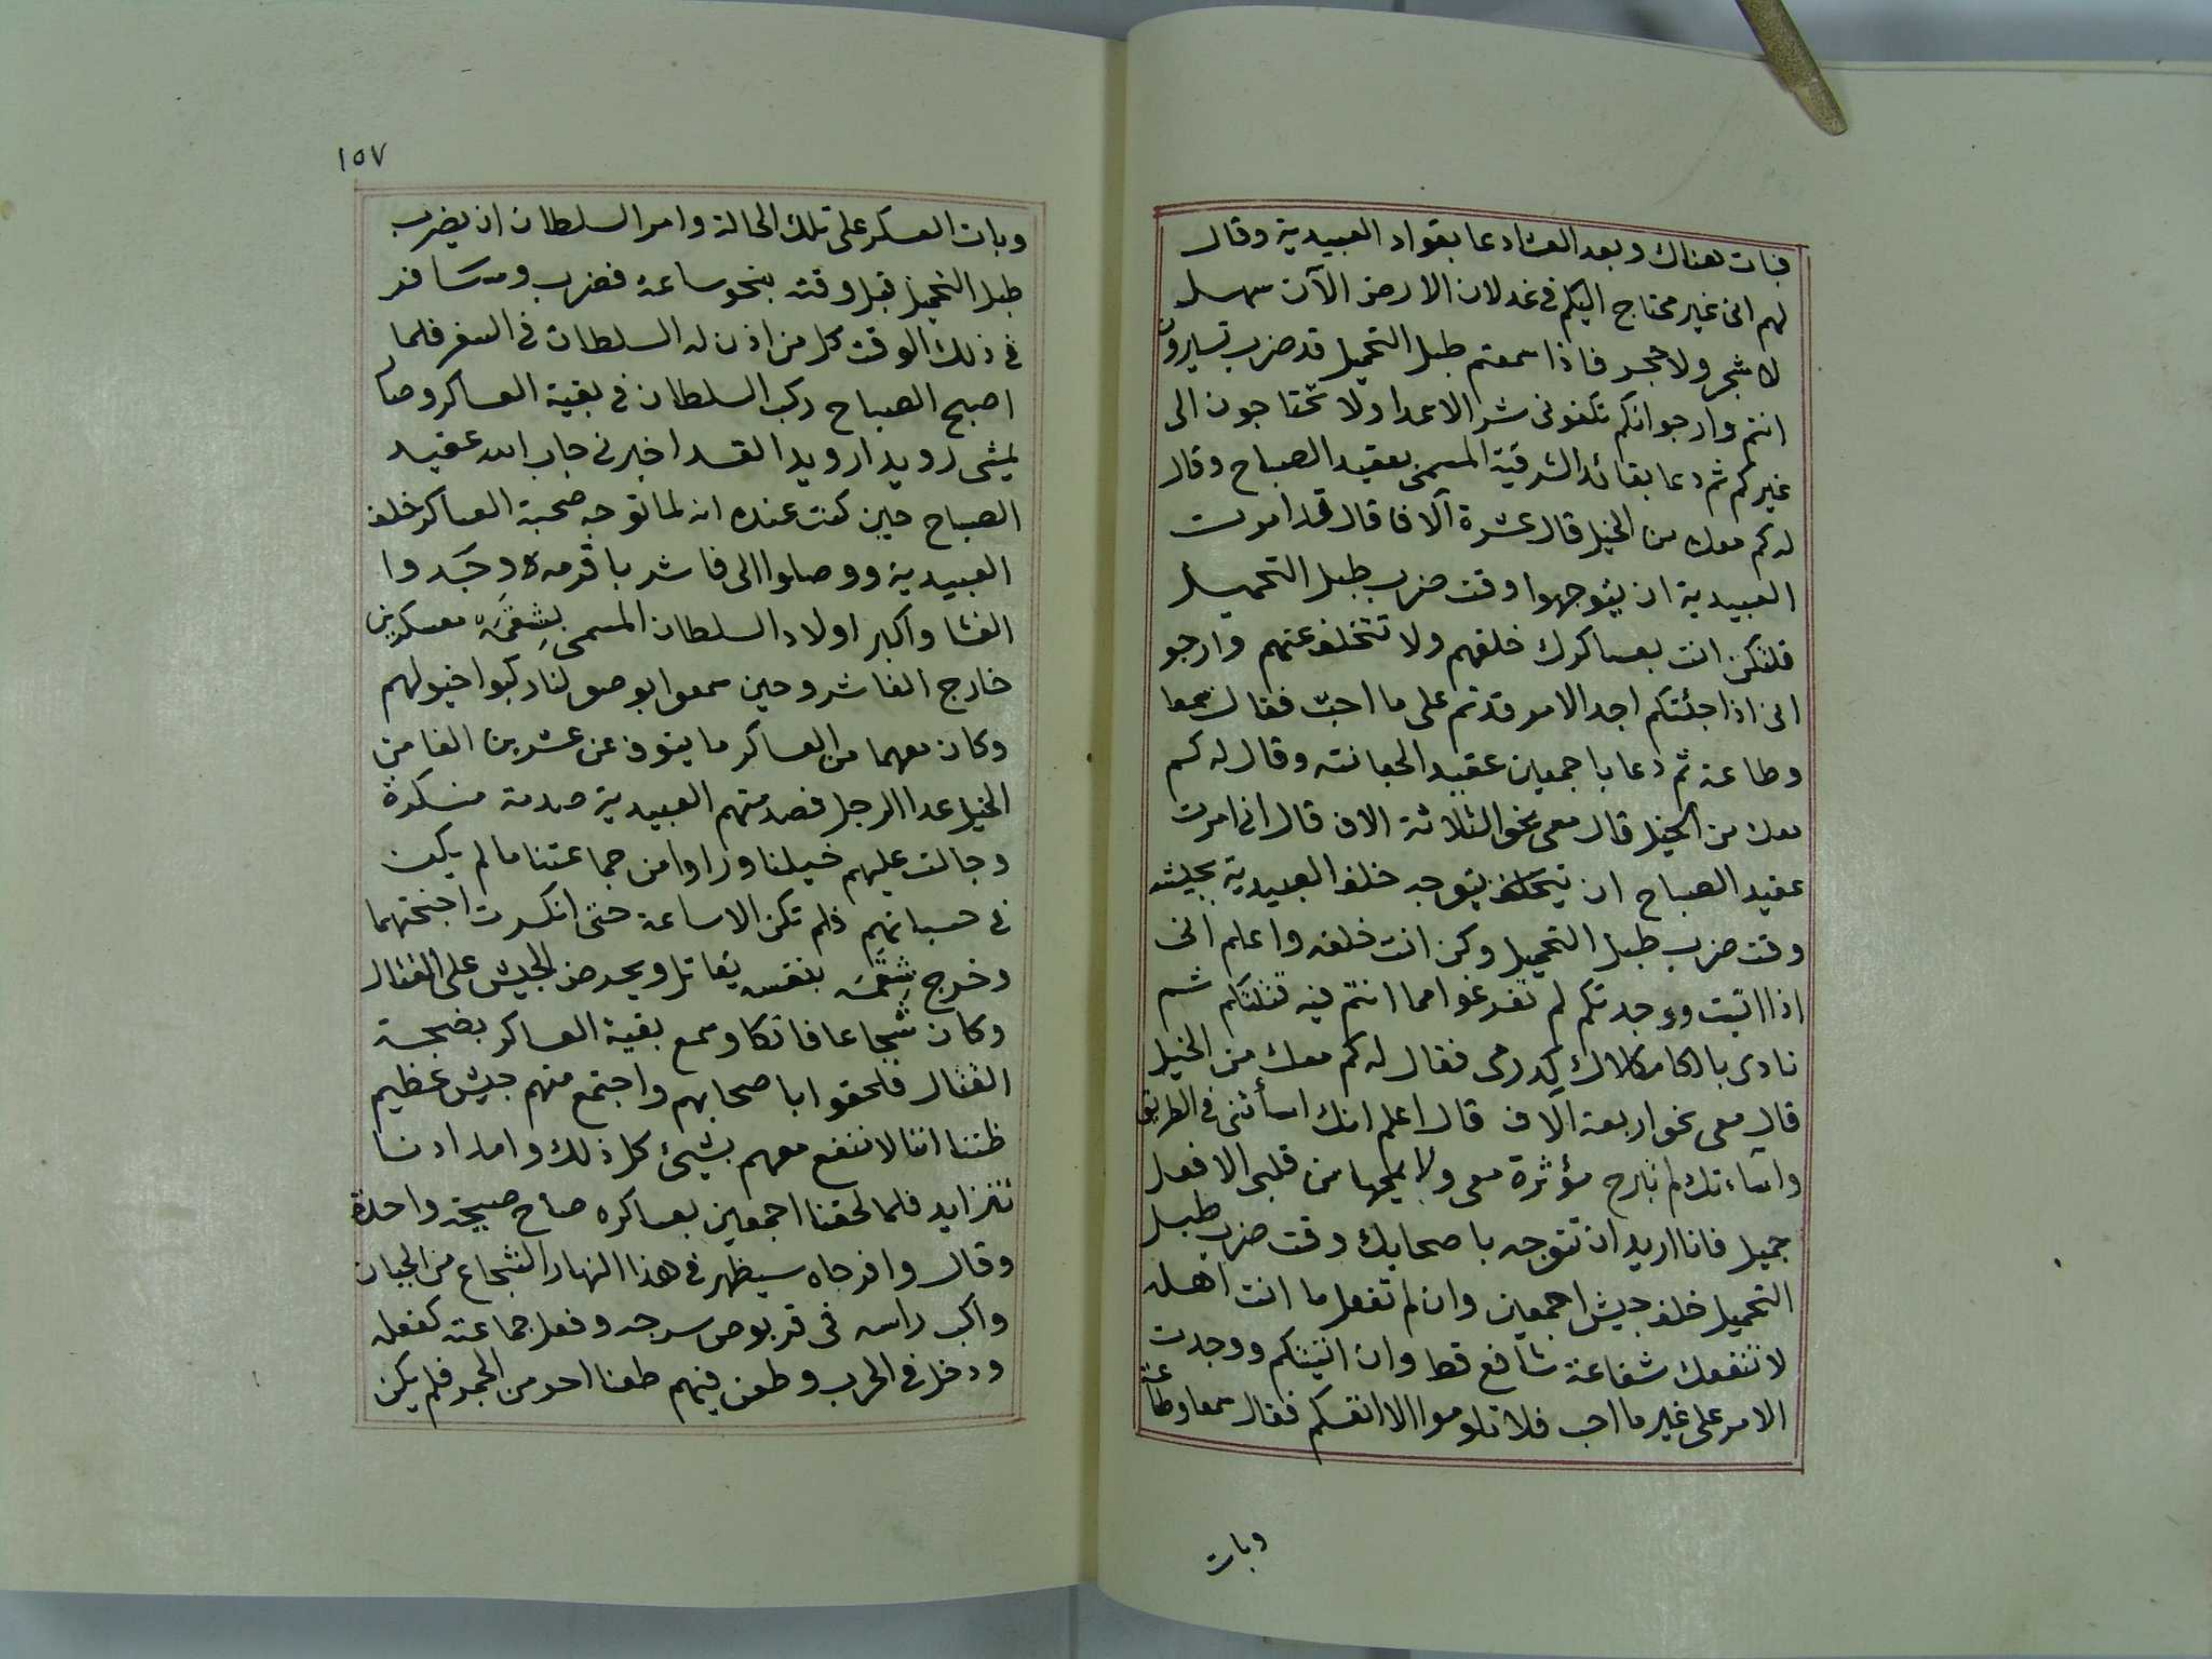 فبات هناك وبعد العشا دعا بقواد العبيدية وقال
لهم انى غير محتاج اليكم فى غد لان الارض الآن سهل
لا شجر ولا حجر فاذا سمعتم طبل التحميل قد ضرب تسيرون
انتم وارجوا انكم تكفونى شر الاعدا ولا تحتاجون الى
غيركم ثم دعا بقائد الشرقية المسمى بعقيد الصباح وقال
له كم معك من الخيل قال عشرة آلاف قال قد امرت
العبيدية ان يتوجهوا وقت ضرب طبل التحميل
فلتكن انت بعساكرك خلفهم ولا تتخلف عنهم وارجو
انى اذا جئتكم اجد الامر قد تم على ما احبّ فقال سمعا
وطاعة ثم دعا باجمعين عقيد الجبانته وقال له كم
معك من الخيل قال معى نحو الثلاثة الاف قال انى امرت
عقيد الصباح ان يتوجه خلف العبيدية بجيشه
وقت ضرب طبل التحميل وكن انت خلفه واعلم انى
اذا اتيت ووجدتكم لم تفرغوا مما انتم فيه قتلتكم ثم
نادى بالكامكلاك كدرمى فقال له كم معك من الخيل
قال معى نحو اربعة آلاف قال اعلم انك اسأتنى فى الطريق
واساءتك لم تبرح مؤثرة معى ولا يمحيها من قلبى الا فعل
جميل فانا اريد ان تتوجه باصحابك وقت ضرب طبل
التحميل خلف جيش اجمعين وان لم تفعل ما انت اهله
لا تنفعك شفاعة شافع قط وان اتيتكم ووجدت
الامر على غير ما احب فلا تلوموا الا انفسكم فقال سمعا وطاعة
وبات
١٥٧
وبات العسكر على تلك الحالة وامر السلطان ان يضرب
طبل التحميل قبل وقته بنحو ساعة فضرب وسافر
فى ذلك الوقت كل من اذن له السلطان فى السفر فلما
اصبح الصباح ركب السلطان فى بقية العساكر وصار
يمشى رويدا رويدا لقد اخبرنى جاب الله عقيد
الصباح حين كنت عنده انه لما توجه صحبة العساكر خلف
العبيدية ووصلوا الى فاشر باقرمه وجدوا
الفشا واكبر اولاد السلطان المسمى بشقمه معسكرين
خارج الفاشر وحين سمعوا بوصولنا ركبوا خيولهم
وكان معهما من العساكر ما ينوف عن عشرين الفا من
الخيل عدا الرجل فصدمتهم العبيدية صدمة منكرة
وجالت عليهم خيلنا وراوا من جماعتنا ما لم يكن
فى حسبانهم فلم تكن الا ساعة حتى انكسرت اجنحتهما
وخرج شقمه بنفسه يقاتل ويحرض الجيش على القتال
وكان شجاعا فاتكا وسمع بقية العساكر بضجة
القتال فلحقوا باصحابهم واجتمع منهم جيش عظيم
ظننا اننا لا ننفع معهم بشيئ كل ذلك وامدادنا
تتزايد فلما لحقنا اجمعين بعساكره صاح صيحة واحدة
وقال وافرجاه سيظهر فى هذا النهار الشجاع من الجبان
واكب راسه فى قربوص سرجه وفعل جماعته كفعله
ودخل فى الحرب وطعن فيهم طعنا احر من الجمر فلم يكن